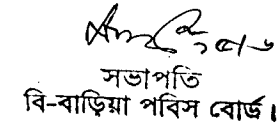 সভাপতি
বি-বাড়িয়া পবিস বোর্ড।